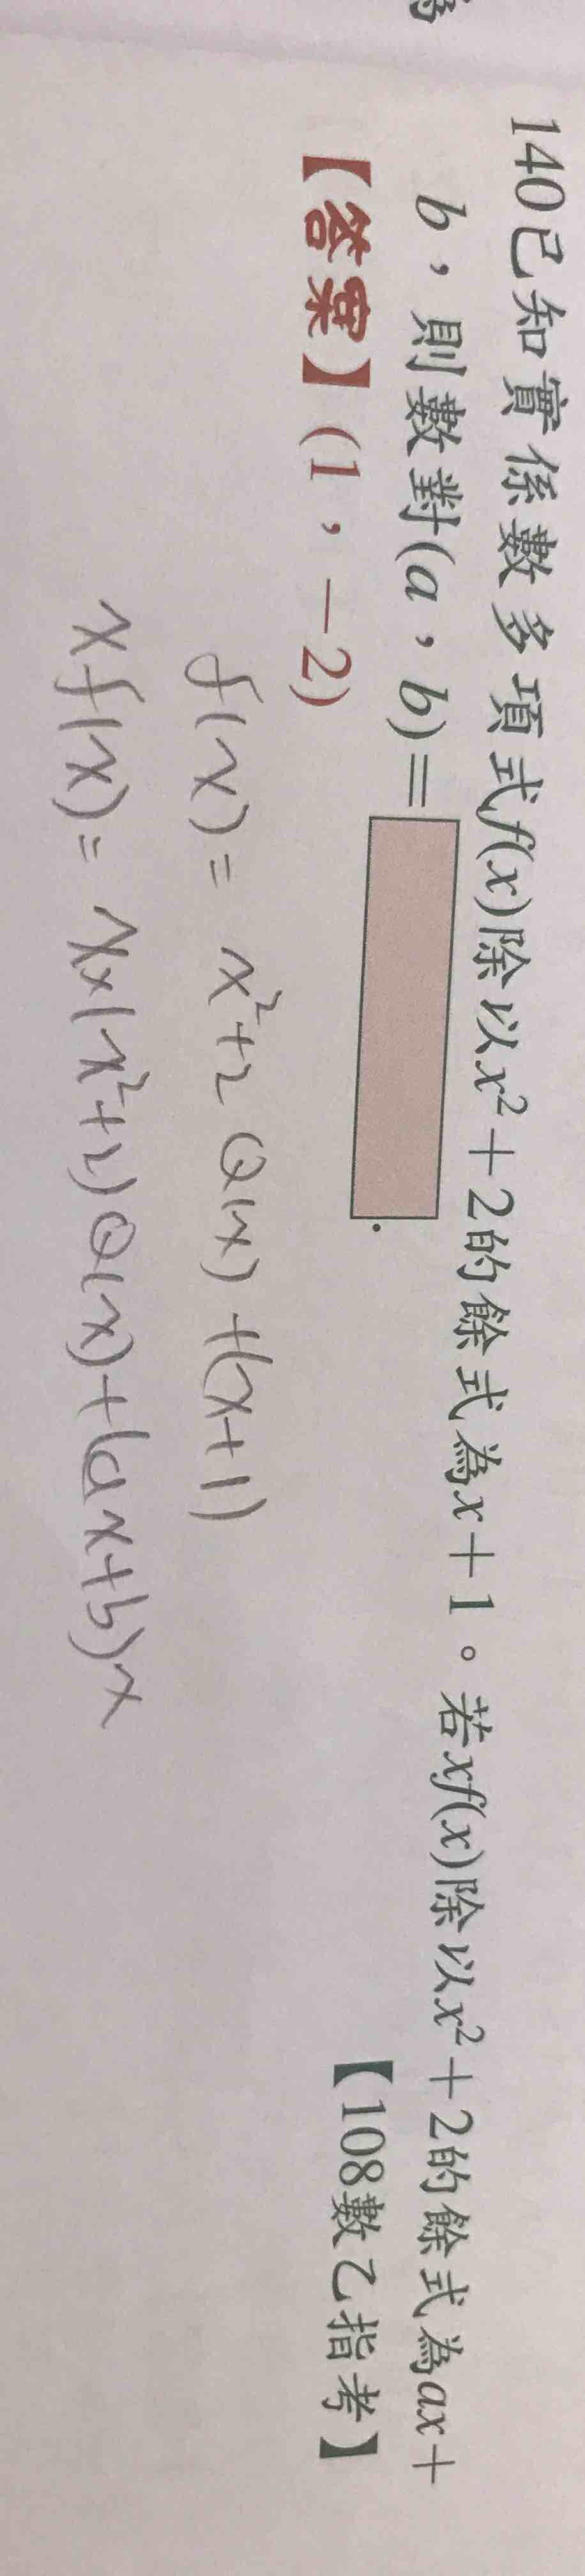 為
140已知實係數多項式f(x)除以x²+2的餘式為x+1。若xf(x)除以x²+2的餘式為ax+
b,則數對(a,b)= .
【108數乙指考】
【答案】(1,-2)
f(x)= x²+2 Q(x) +(x+1)
xf(x)= x×(x²+2)Q(x)+(ax+b)x